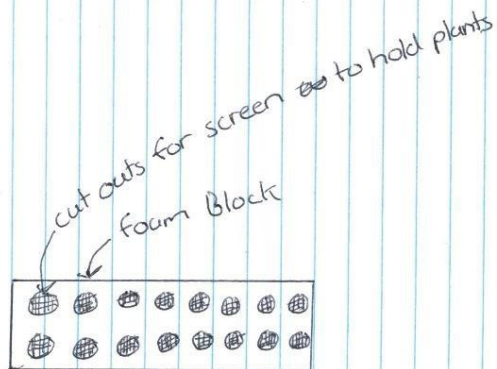 cut outs for screen to hold plants
foam Block